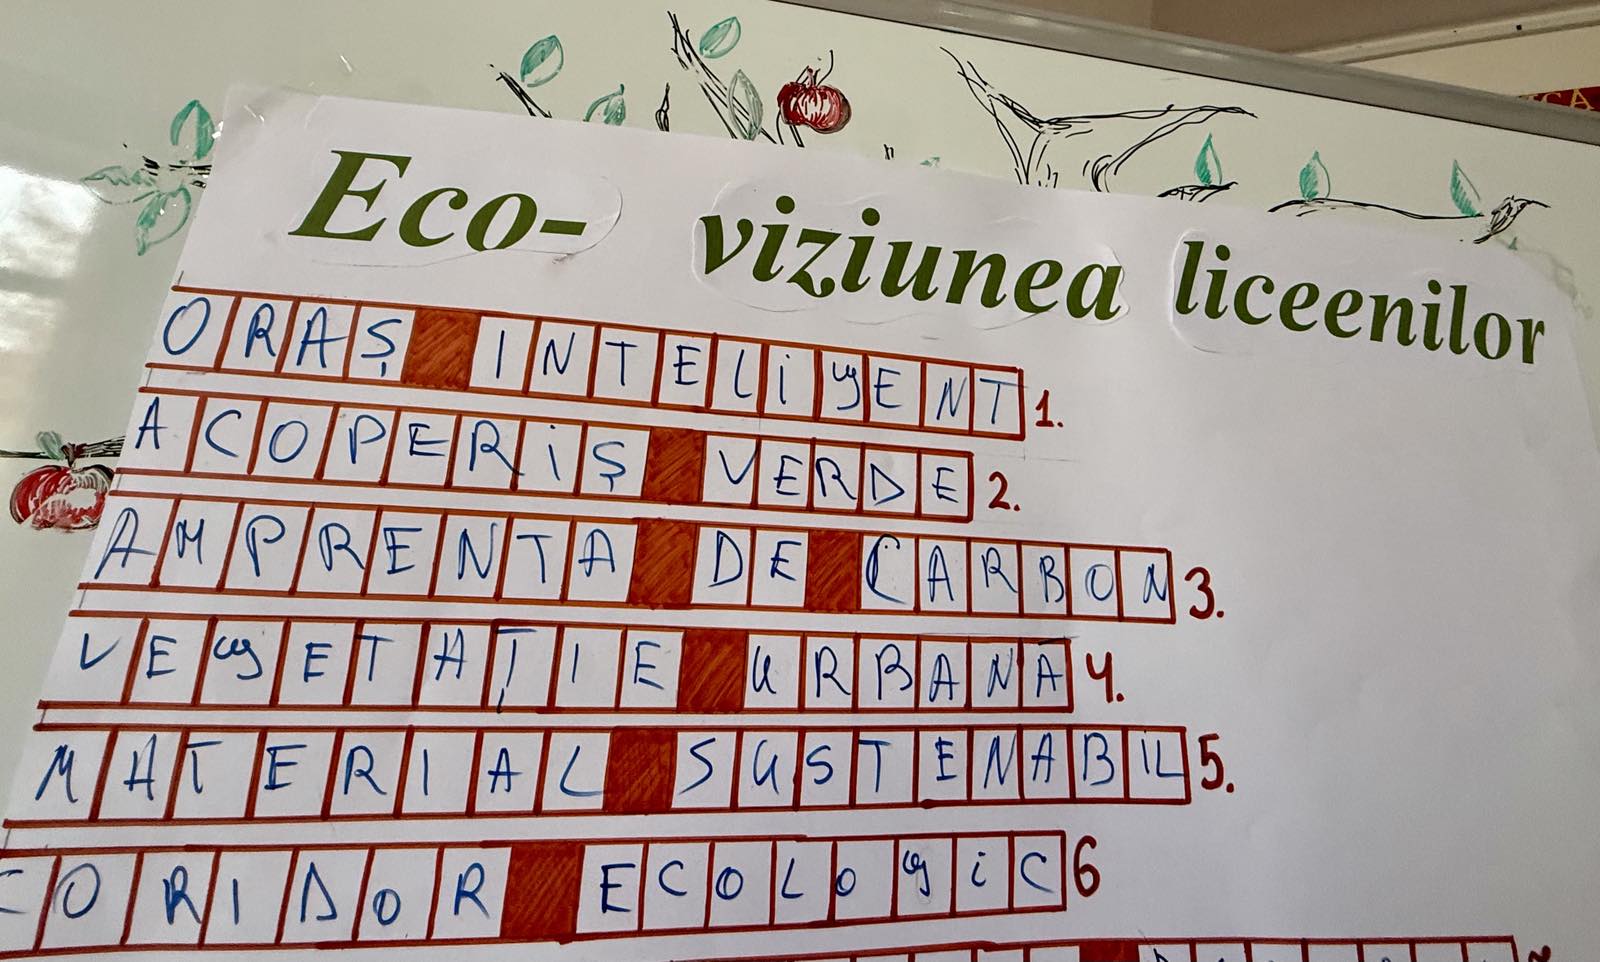 Eco- viziunea liceenilor
ORAȘ INTELIGENT 1.
ACOPERIȘ VERDE 2.
AMPRENTA DE CARBON 3.
VEGETAȚIE URBANA 4.
MATERIAL SUSTENABIL 5.
CORIDOR ECOLOGIC 6